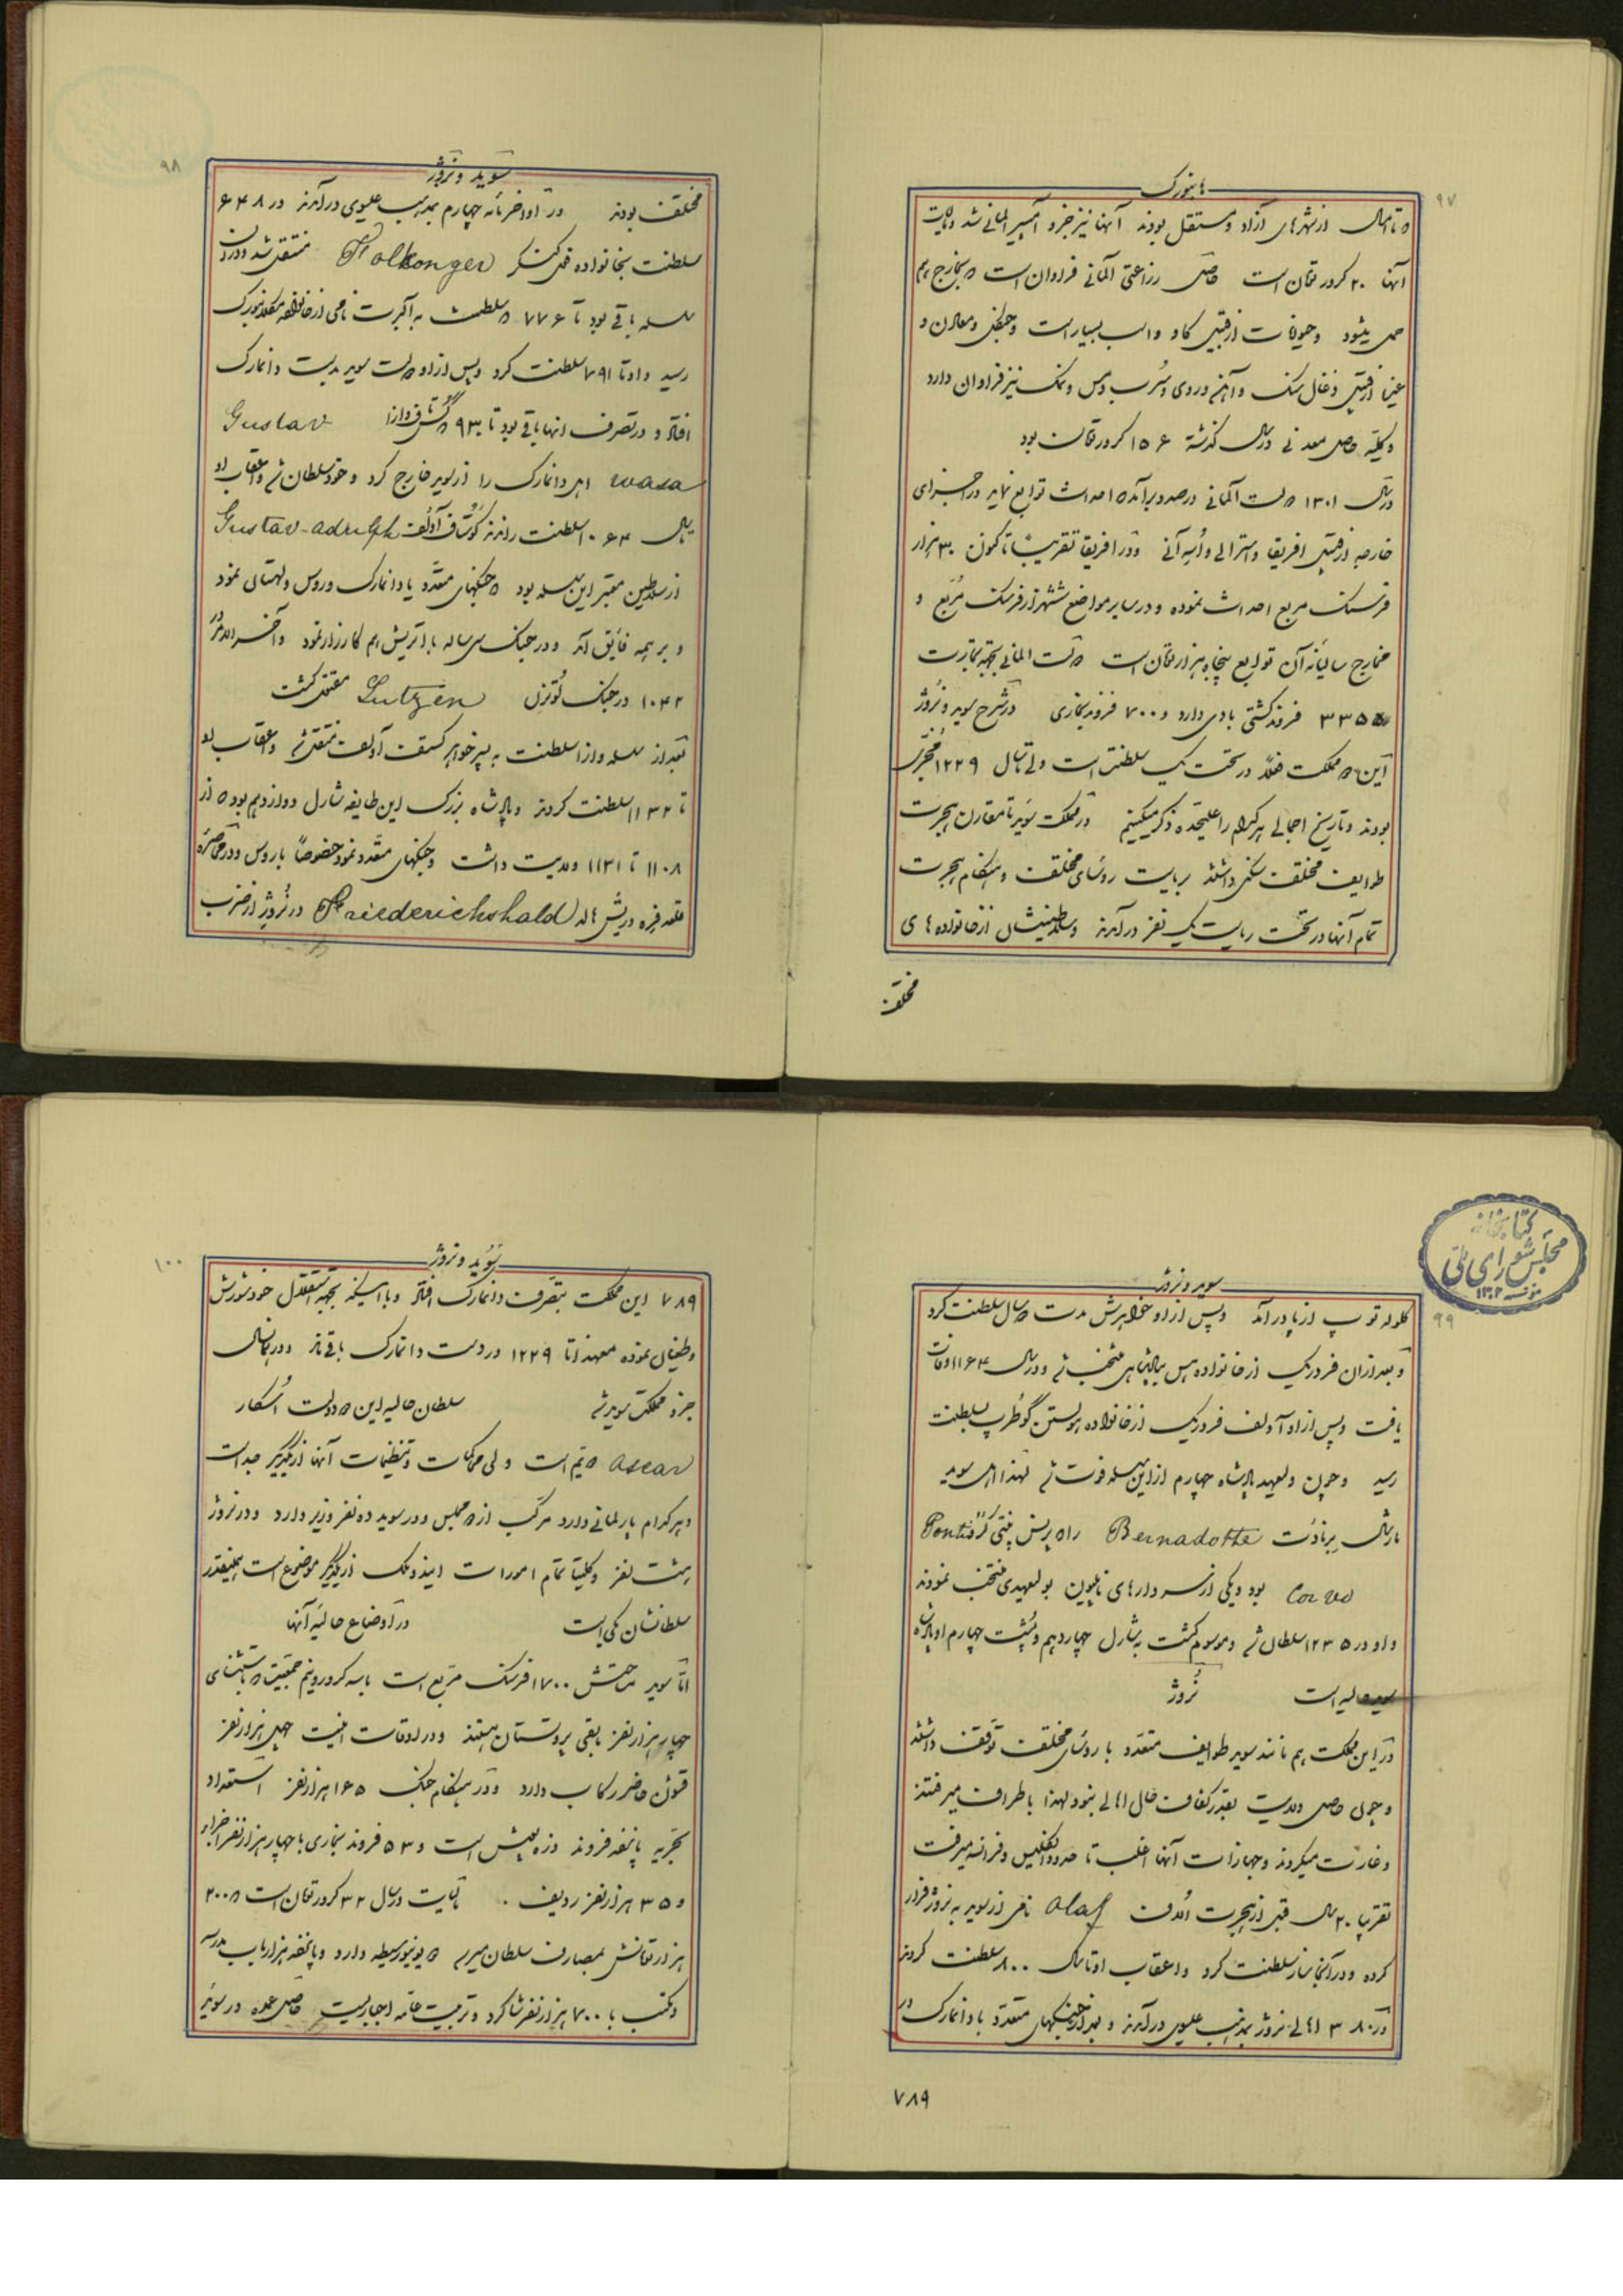 ۹۷
هانبورک
از شهرهای آزاد و مستقل بودند آنها نیز جزو آمپیر المانی شد و مالیات
آنها ۲۰ کرور تومان است حاصل زراعتی آلمانی فراوان است و بخارج هم
حمل میشود و حیوانات از قبیل گاو و اسب بسیار است و جنگل و معادن و
از قبیل ذغال سنک و آهن و روی و سُرب و مس و نمک نیز فراوان دارد
و کلیه حاصل معدنی در سال گذشته ۱۵۶ کرور تومان بود
در سال ۱۳۰۱ دولت آلمانی درصدد برآمده احداث توابع نماید در اجزای
خارجه از قبیل افریقا و استرالی و اُسه آنی و در افریقا تقریباً تاکنون ۳۰ هزار
فرسنک مربع احداث نموده و در سایر مواضع ششهزار فرسنک مُربّع و
مخارج سالیانه آن توابع پنجاه هزار تومان است دولت المانی بجهة تجارت
۳۳۵۵ فروند کشتی بادی دارد و ۷۰۰ فروند بخاری در شرح سوید و نُروژ
این دو مملکت فعلاً در تحت یک سلطنت است ولی تا سال ۱۲۲۹ مُجزّی
بودند و تاریخ اجمالی هر کدام را علیحده ذکر میکنیم در مملکت سوید تا مقارن هجرت
طوایف مختلف سکنی داشتند بریاست روسای مختلف و هنگام هجرت
تمام آنها در تحت ریاست یک نفر درآمدند و سلاطینشان از خانواده های
مختلف
۹۸
سوید و نروژ
مختلف بودند در اواخر مائه چهارم بمذهب عیسوی درآمدند در ۶۴۸
سلطنت بخانواده فلکنگر Folkonger منتقل شد و در آن
سلسله باقی بود تا ۷۷۶ و سلطنت به آلبرت نامی از خانواده مکلنبورک
رسید و او تا ۷۹۱ سلطنت کرد و پس از او دولت سوید بدست دانمارک
افتاد و در تصرف انها باقی بود تا ۹۳۰ گوستاف وازا Gustav
wasa اهل دانمارک را از سوید خارج کرد و خود سلطان شد و اعقاب او
تا سال ۱۰۶۴ سلطنت راندند گوستاف آدُلف Gustav-adulph
از سلاطین معتبر این سلسله بود و جنکهای متعدّد با دانمارک و روس و لهستان نمود
و بر همه فایق آمد و در جنک سی ساله با اتریش هم کارزار نمود و آخرالامر در
۱۰۴۲ در جنک لُوتزن Lutzen مقتول گشت
بعد از سلسله وازا سلطنت به پسر خواهر گستف آدلف منتقل شد و اعقاب او
تا ۱۱۳۲ سلطنت کردند و پادشاه بزرک این طایفه شارل دوازدهم بود که از
۱۱۰۸ تا ۱۱۳۱ ولایت داشت و جنکهای متعدد نمود خصوصاً با روس و در محاصره
قلعه فره دریش هاله Friederichshald در نُروژ از ضرب
۹۹
سوید و نروژ
گلوله توپ از پا درآمد و پس از او خواهرش مدت سال سلطنت کرد
و بعد از آن فردریک از خانواده هس بپادشاهی منتخب شد و در سال ۱۱۶۴ وفات
یافت و پس از او آدلف فردریک از خانواده هولستن گوطرپ بسلطنت
رسید و چون ولیعهد پادشاه چهارم از این سلسله فوت شد لهذا اهل سوید
مارشال برنادُت Bernadotte را که پرنس پنتی کُروُ Ponti
Corvo بود و یکی از سردارهای ناپلیون بولیعهدی منتخب نمودند
و او در ۱۲۳۵ سلطان شد و موسوم گشت بشارل چهاردهم و پشت چهارم او پادشاه
حالیه است نُروژ
در این مملکت هم مانند سوید طوایف متعدّد با روسای مختلف توقف داشتند
و چون حاصل ولایت بقدر کفاف حال اهالی نبود لهذا باطراف میرفتند
و غارت میکردند و جهازات آنها اغلب تا حدود انگلیس و فرانسه میرفت
تقریبا ۲۰ سال قبل از هجرت اُلاف Olaf نامی از سوید به نروژ فرار
کرده و در آنجا بنا بسلطنت کرد و اعقاب او تا سال ۸۰۰ سلطنت کردند
در ۳۸۰ اهالی نروژ بمذهب عیسوی درآمدند و بعد از جنکهای متعدّد با دانمارک در
۷۸۹
کتابخانه
مجلس شورای ملی
مؤسسه ۱۳۰۲
۱۰۰
سوید و نروژ
۷۸۹ این مملکت بتصّرف دانمارک افتاد و با اینکه بجهة استقلال خود شورش
و طغیان نموده معهذا تا ۱۲۲۹ در دست دانمارک باقی ماند و در همان سال
جزو مملکت سوید شد سلطان حالیه این دو دولت اُسکار
Oscar دویم است ولی ممالکات و تنظیمات آنها از یکدیگر جداست
و هر کدام پارلمانی دارد مرکب از دو مجلس و در سوید ده نفر وزیر دارد و در نروژ
هشت نفر و کلیتاً تمام امورات ایندو ملک از یکدیگر موضوع است همینقدر
سلطانشان یکی است در اوضاع حالیه آنها
امّا سوید مساحتش ۱۷۰۰۰ فرسنک مربع است با نه کرور و نیم جمعیت که باستثنای
چهار هزار نفر مابقی پروتستان هستند و در اوقات امنیت چهل هزار نفر
قشون حاضر رکاب دارد و در هنگام جنک ۱۶۵ هزار نفر استعداد
بحریه پانزده فروند زره پوش است و ۵۳ فروند بخاری با چهار هزار نفر اجزاء
و ۳۵ هزار نفر ردیف . مالیات در سال ۳۲ کرور تومان است که ۲۰۰
هزار تومانش بمصارف سلطان میرسد دو یونیورسیطه دارد و پانزده هزار باب مدرسه
و مکتب با ۷۰۰ هزار نفر شاگرد و تربیت عامّه اجباریست حاصل عمده در سوید